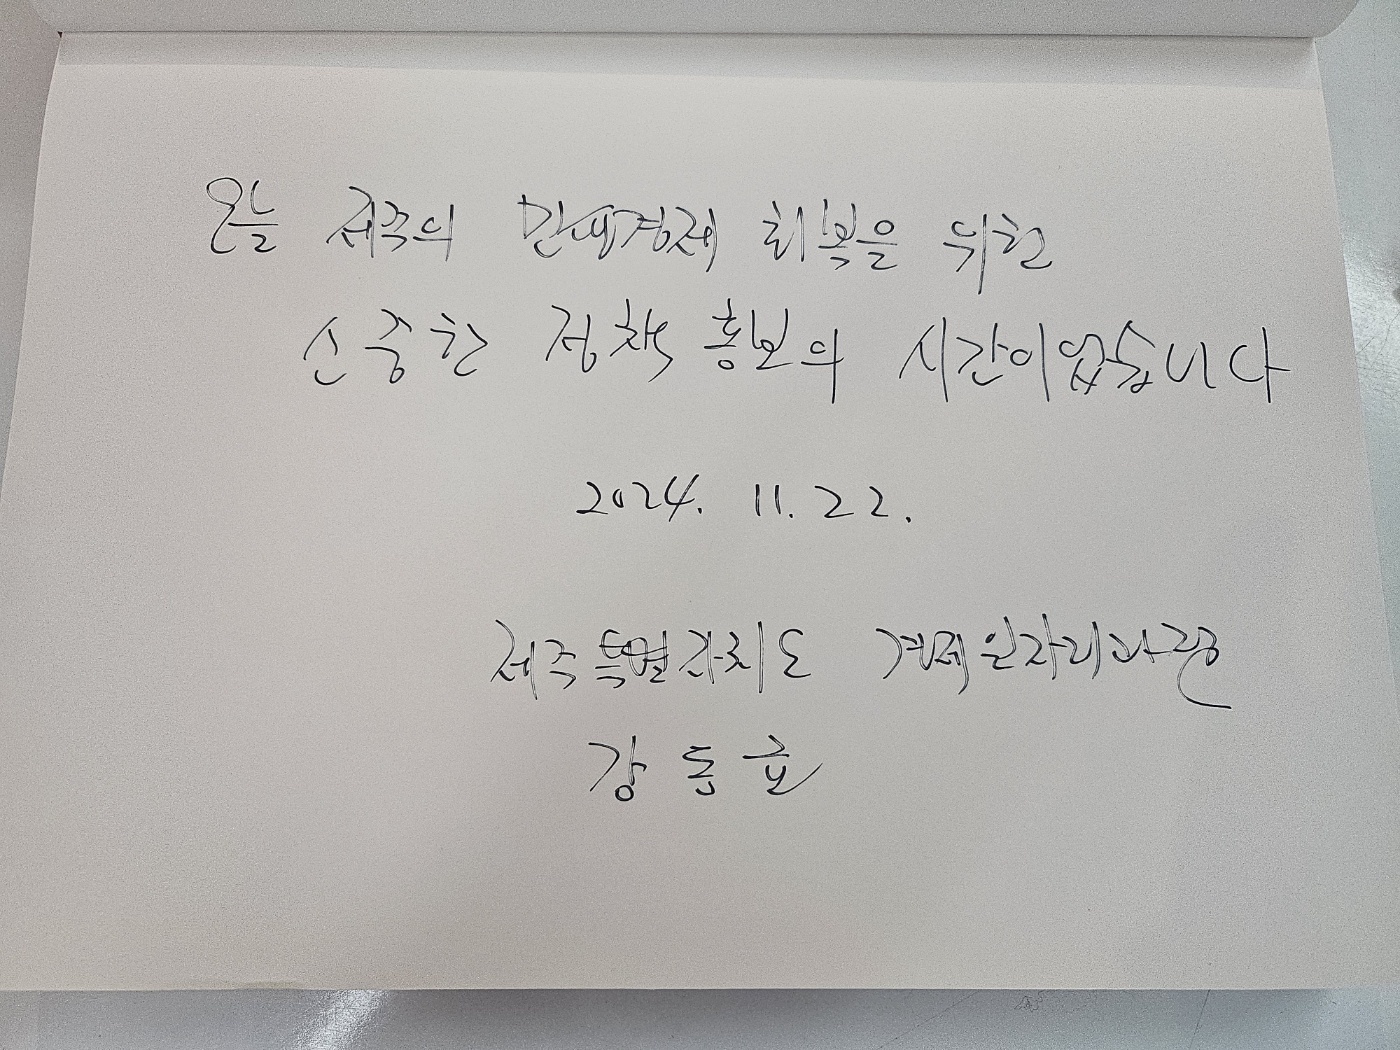 오늘 제주의 민생경제 회복을 위한
소중한 정책 홍보의 시간이었습니다
2024. 11. 22.
제주특별자치도 경제일자리과장
강동효